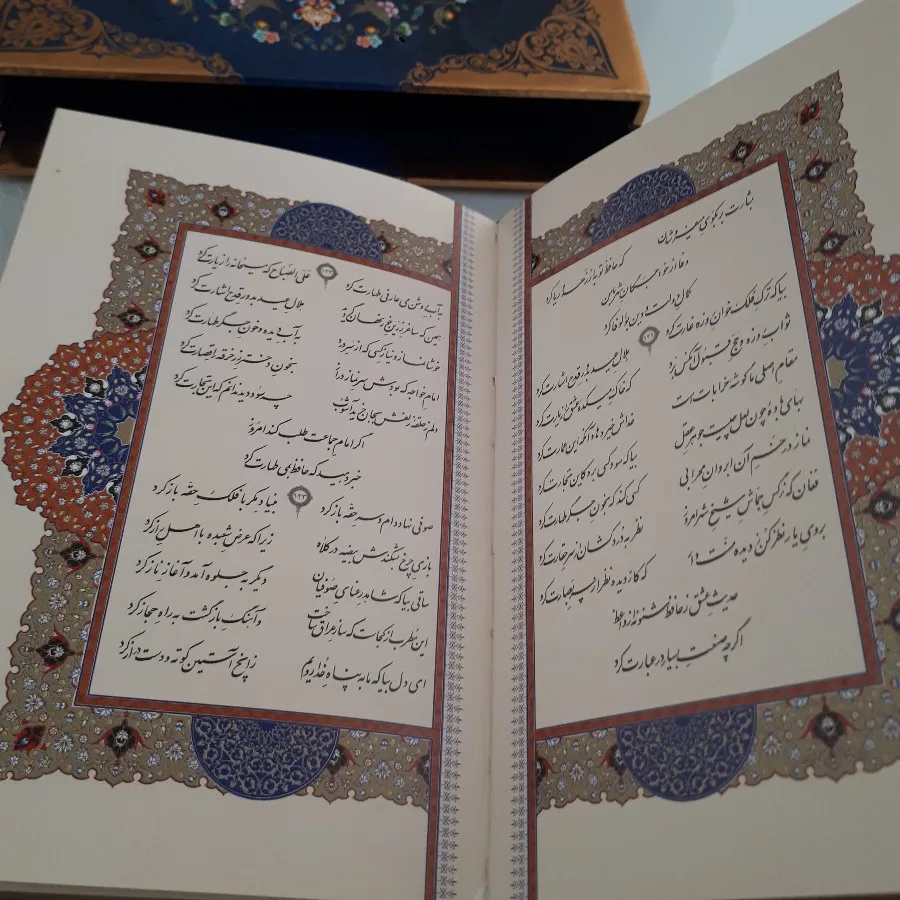 بشارت بر بکوی میفروشان
که حافظ توبه از زهد ریا کرد
وفا از خواجگان شهر با من
کمال دولت و دین بوالوفا کرد
۱۳۱
بیا که ترک فلک خوان روزه غارت کرد هلال عید بدور قدح اشارت کرد
ثواب روزه و حج قبول آنکس برد که خاک میکده عشق را زیارت کرد
مقام اصلی ما گوشه خرابات است خداش خیر دهاد آنکه این عمارت کرد
بهای بادهٔ چون لعل چیست جوهر عقل بیا که سود کسی برد کاین تجارت کرد
نماز در خم آن ابروان محرابی کسی کند که بخون جگر طهارت کرد
فغان که نرگس جماش شیخ شهر امروز نظر به دردکشان از سر حقارت کرد
بروی یار نظر کن ز دیده منت دار که کار دیده نظر از سر بصارت کرد
حدیث عشق ز حافظ شنو نه از واعظ
اگرچه صنعت بسیار در عبارت کرد
۱۳۲
بآب روشن می عارفی طهارت کرد علی الصباح که میخانه را زیارت کرد
همین که ساغر زرین خور نهان گردید هلال عید بدور قدح اشارت کرد
خوشا نماز و نیاز کسی که از سر درد بآب دیده و خون جگر طهارت کرد
امام خواجه که بودش سر نماز دراز بخون دختر رز خرقه را قصارت کرد
دلم ز حلقه زلفش بجان خرید آشوب چه سود دید ندانم که این تجارت کرد
اگر امام جماعت طلب کند امروز
خبر دهید که حافظ بمی طهارت کرد
۱۳۳
صوفی نهاد دام و سر حقه باز کرد بنیاد مکر با فلک حقه باز کرد
بازی چرخ بشکندش بیضه در کلاه زیرا که عرض شعبده با اهل راز کرد
ساقی بیا که شاهد رعنای صوفیان دیگر به جلوه آمد و آغاز ناز کرد
این مطرب از کجاست که ساز عراق ساخت و آهنگ بازگشت به راه حجاز کرد
ای دل بیا که ما به پناه خدا رویم زآنچ آستین کوته و دست دراز کرد